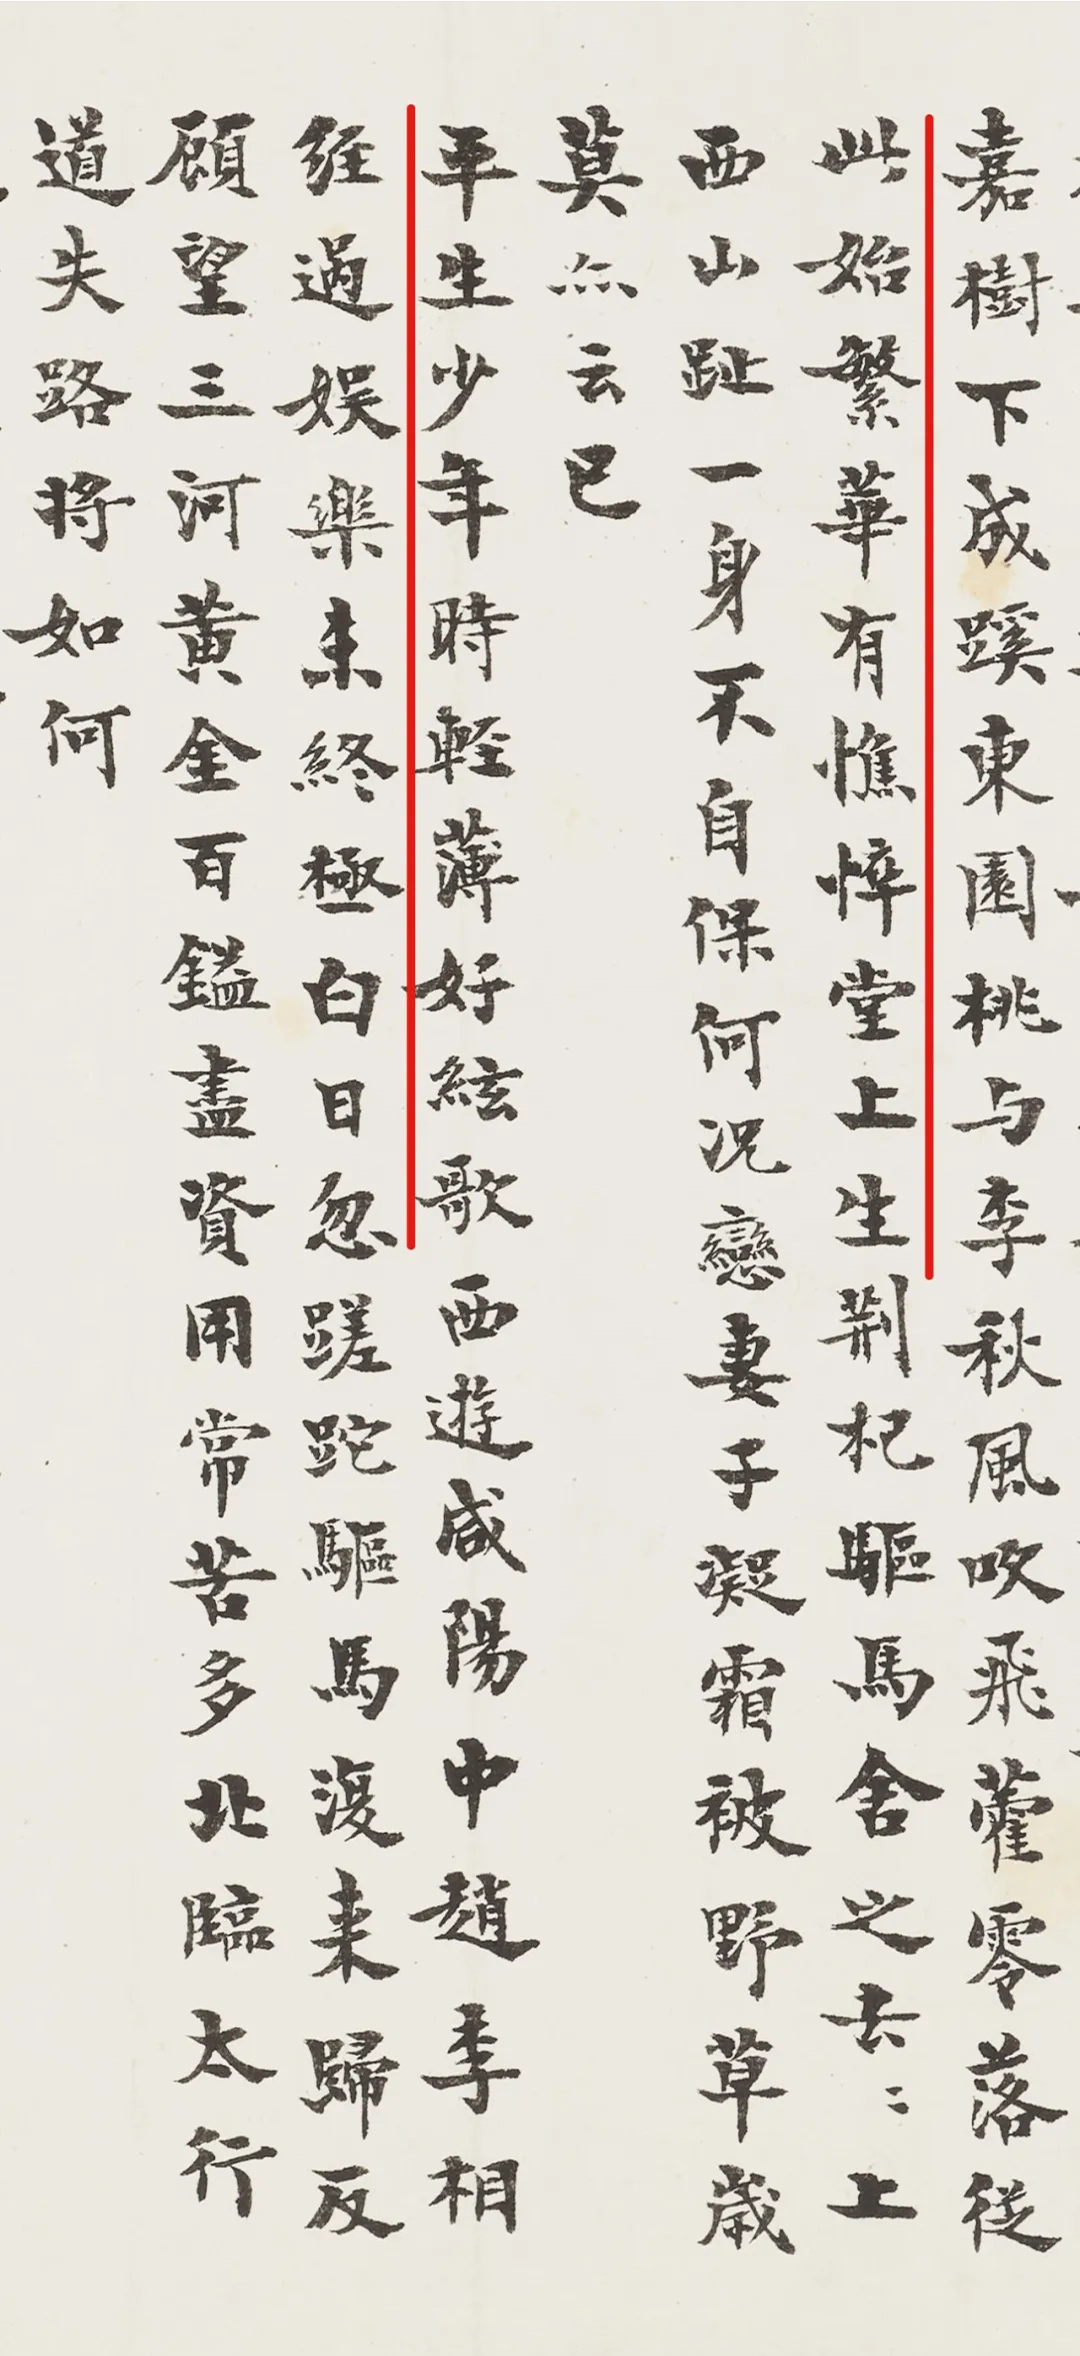 嘉樹下成蹊東園桃与李秋風吹飛藿零落従
此始繁華有憔悴堂上生荆杞驅馬舍之去〻上
西山趾一身不自保何況戀妻子凝霜被野草歳
莫亦云已
平生少年時輕薄好絃歌西遊咸陽中趙李相
経過娯樂未終極白日忽蹉跎驅馬復来歸反
顧望三河黄金百鎰盡資用常苦多北臨太行
道失路将如何